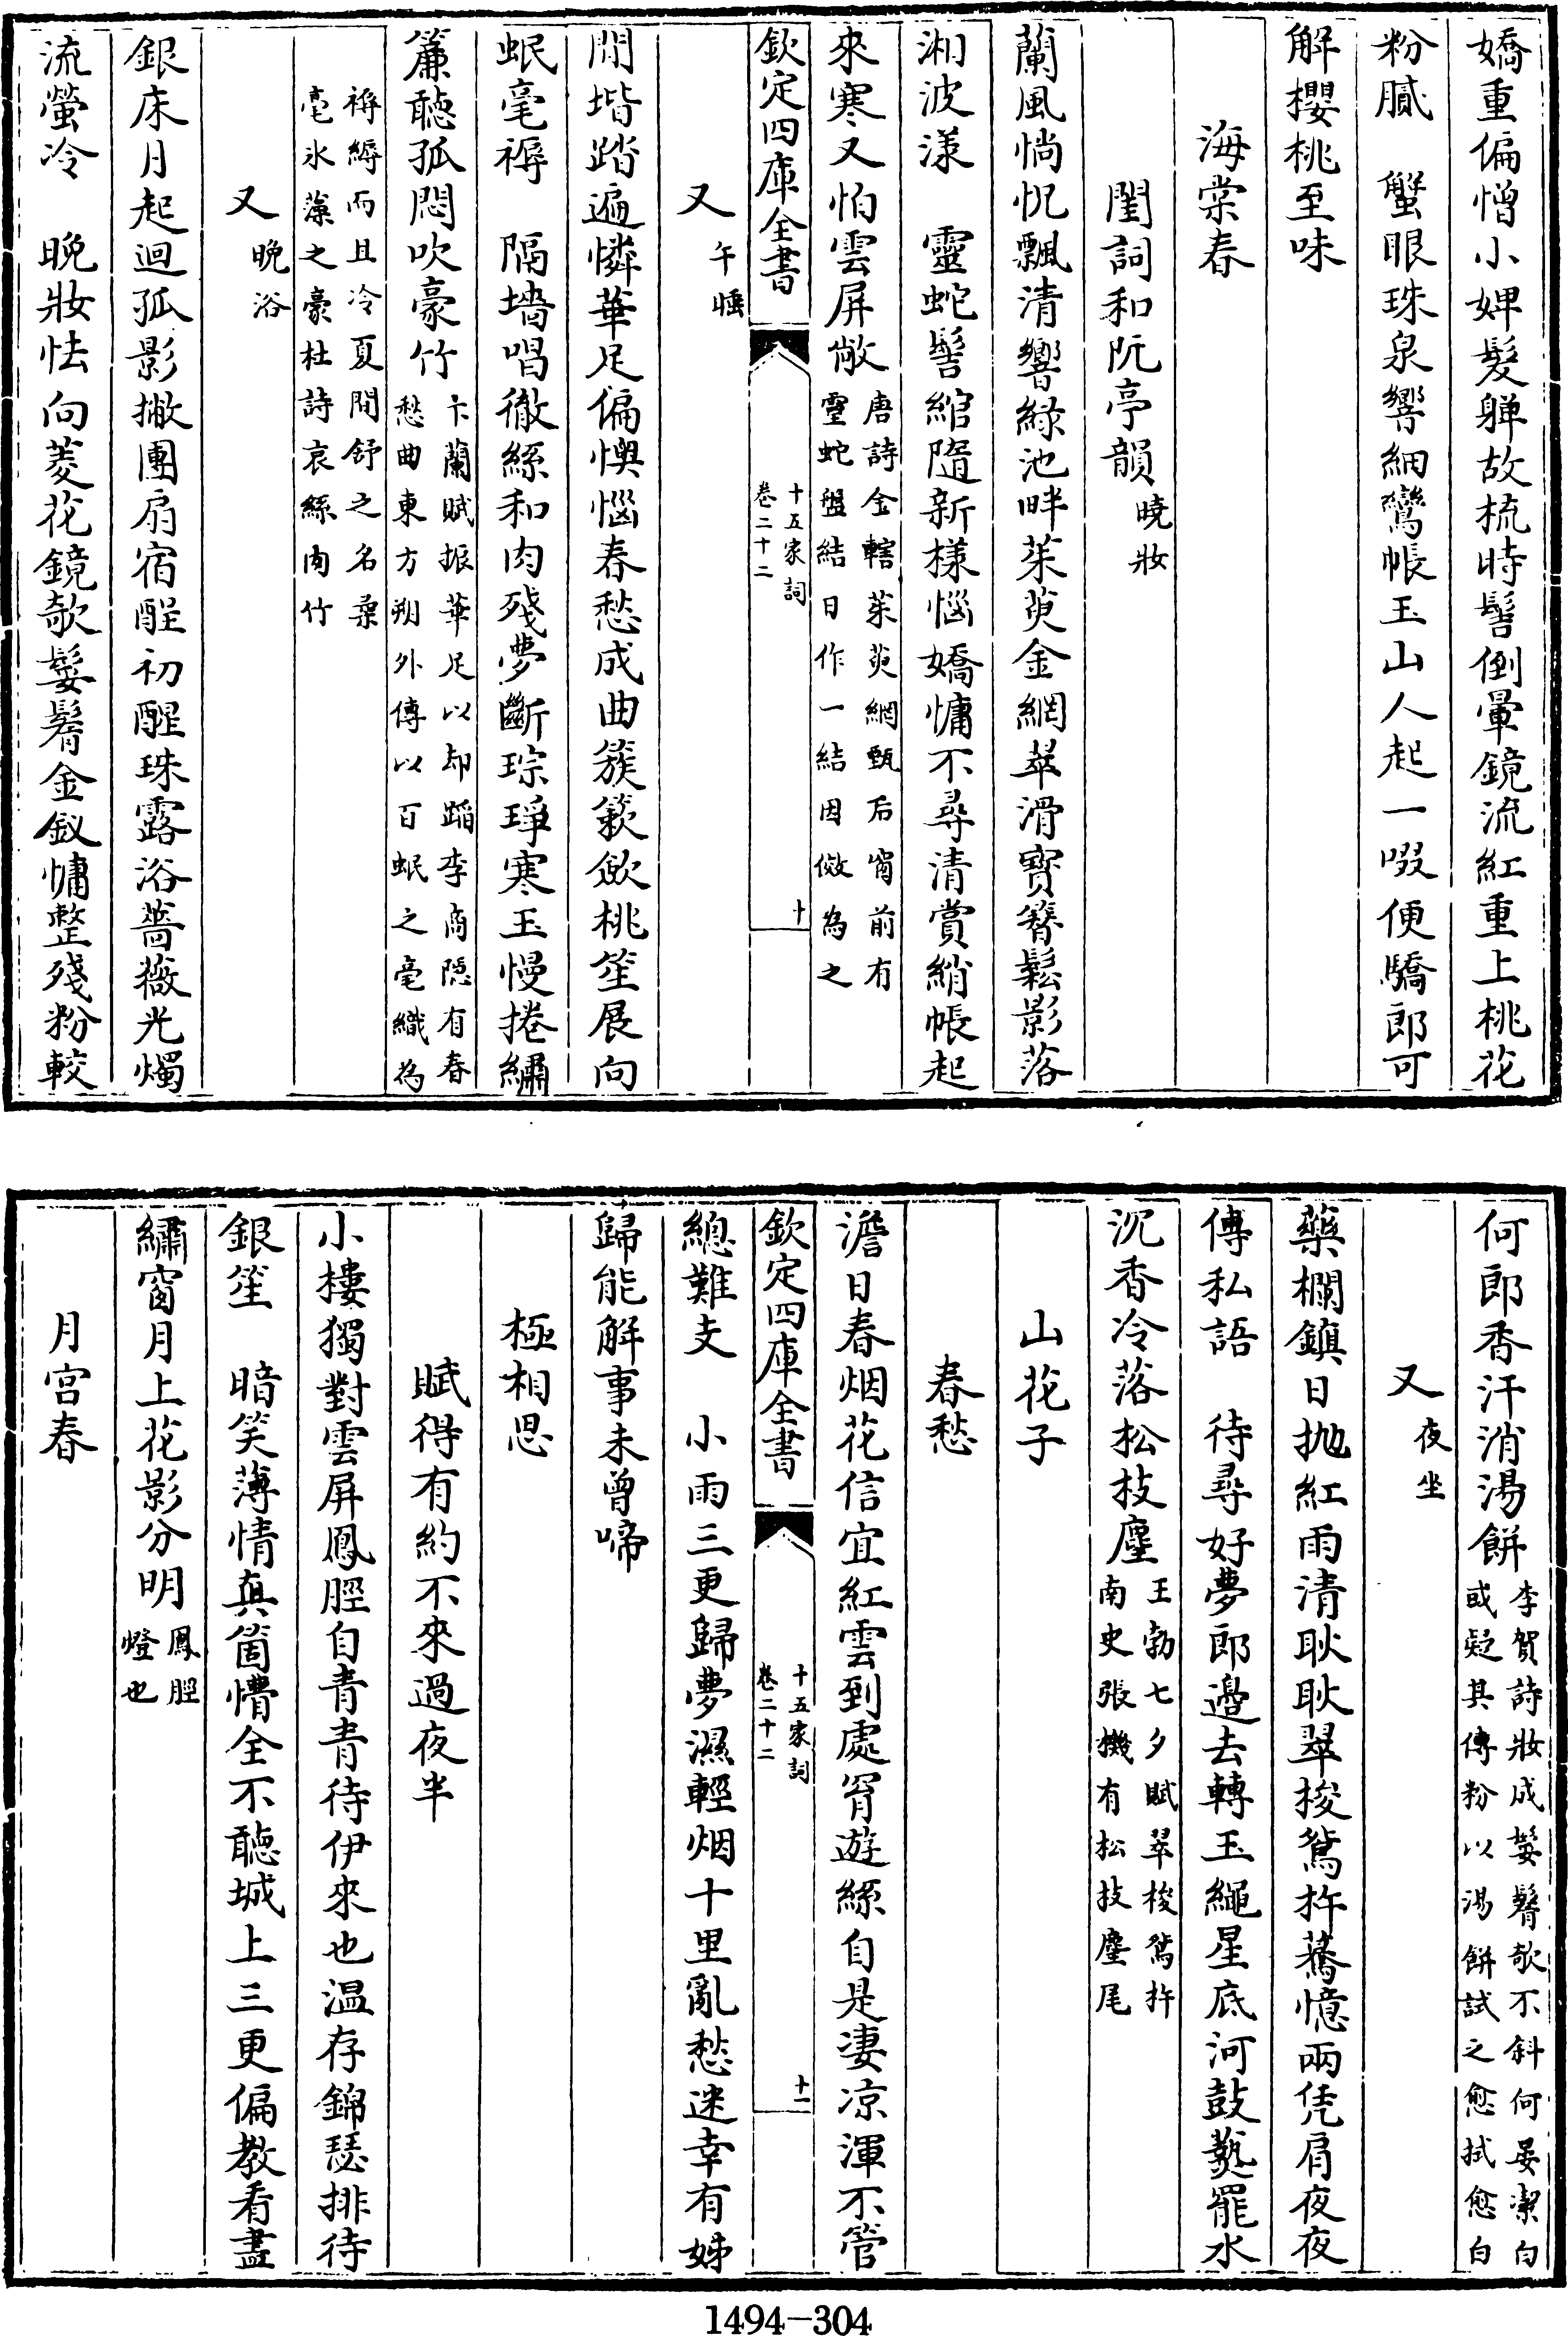 嬌重偏憎小婢髮嚲故梳時髻倒暈鏡流紅重上桃花
粉膩　蟹眼珠泉響細鸞帳玉山人起一啜便驕郎可
解櫻桃至味
海棠春
閨詞和阮亭韻曉妝
蘭風惝怳飄清響綠池畔茱萸金網翠滑寶簪鬆影落
湘波漾　靈蛇髻綰隨新様惱嬌慵不尋清賞綃帳起
來寒又怕雲屏敞唐詩金轄茱萸網甄后宫前有
靈蛇盤結日作一結因倣為之
欽定四庫全書
十五家詞
卷二十二
十
又午睡
閒堦踏遍憐華足偏懊惱春愁成曲簇簌歛桃笙展向
蚊毫褥　隔墻唱徹絲和肉殘夢斷琮琤寒玉慢捲繡
簾聽孤悶吹豪竹卞蘭賦振華足以却蹈李商隱有春
愁曲東方朔外傳以百蚊之毫織為
褥縟而且冷夏間舒之名桑
毫氷藻之豪杜詩哀絲肉竹
又晚浴
銀床月起迴孤影撇團扇宿酲初醒珠露浴薔薇光燭
流螢冷　晚妝怯向菱花鏡欹鬟鬌金釵慵整殘粉較
何郎香汗消湯餅李賀詩妝成鬟鬌欹不斜何晏潔白
或疑其傅粉以湯餅試之愈拭愈白
又夜坐
藥欄鎮日抛紅雨清耿耿翠梭鴛杼驀憶兩凭肩夜夜
傅私語　待尋好夢郎邉去轉玉繩星底河鼓爇罷水
沉香冷落松枝麈王勃七夕賦翠梭鴛杼
南史張機有松技麈尾
山花子
春愁
澹日春烟花信宜紅雲到處罥遊絲自是凄凉渾不管
欽定四庫全書
十五家詞
卷二十二
十一
總難支　小雨三更歸夢濕輕烟十里亂愁迷幸有姊
歸能解事未曾啼
極相思
賦得有約不來過夜半
小樓獨對雲屏鳳脛自青青待伊來也温存錦瑟排待
銀笙　暗笑薄情真箇懵全不聽城上三更偏教看盡
繡窗月上花影分明鳳脛
燈也
月宫春
1494-304